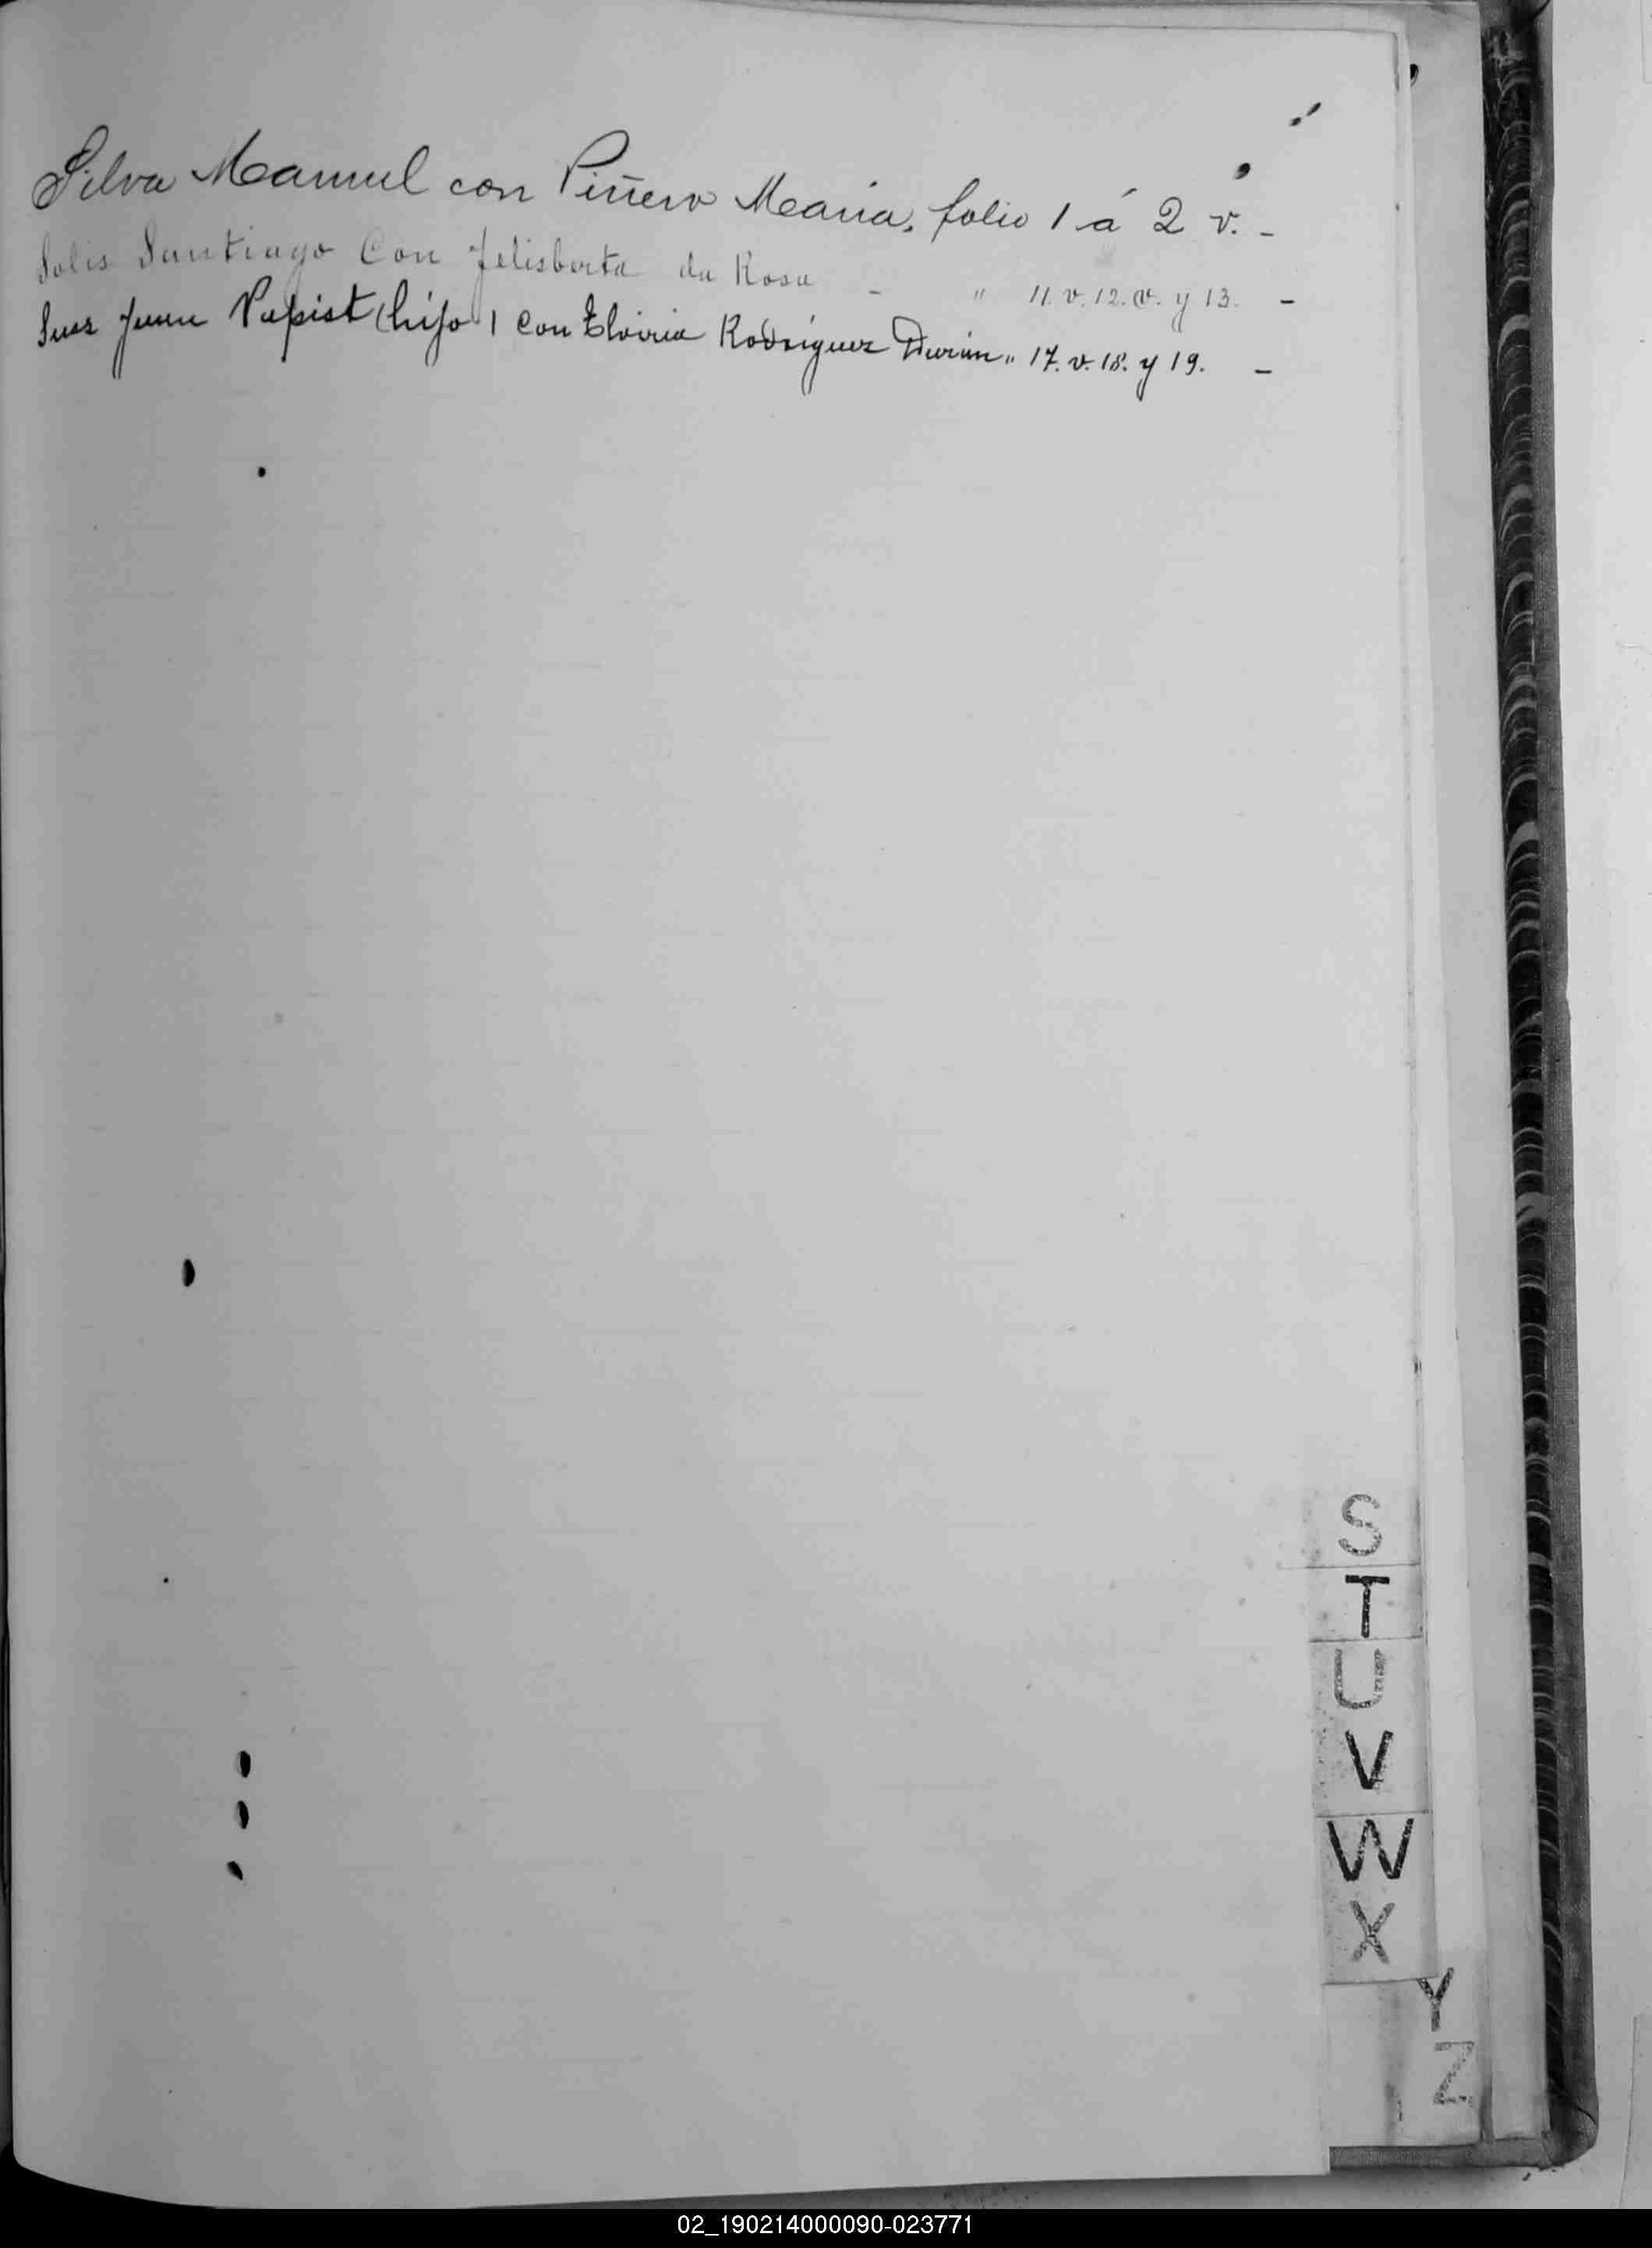 Silva Manuel con Piñero Maria, folio 1 á 2 v. -
Solis Santiago Con Felisberta da Rosa - " 11. v. 12. v. y 13. -
Juan (hijo) con Rodriguez Duran " 17. v. 18. y 19. -
S
T
U
V
W
X
Y
Z
02_190214000090-023771